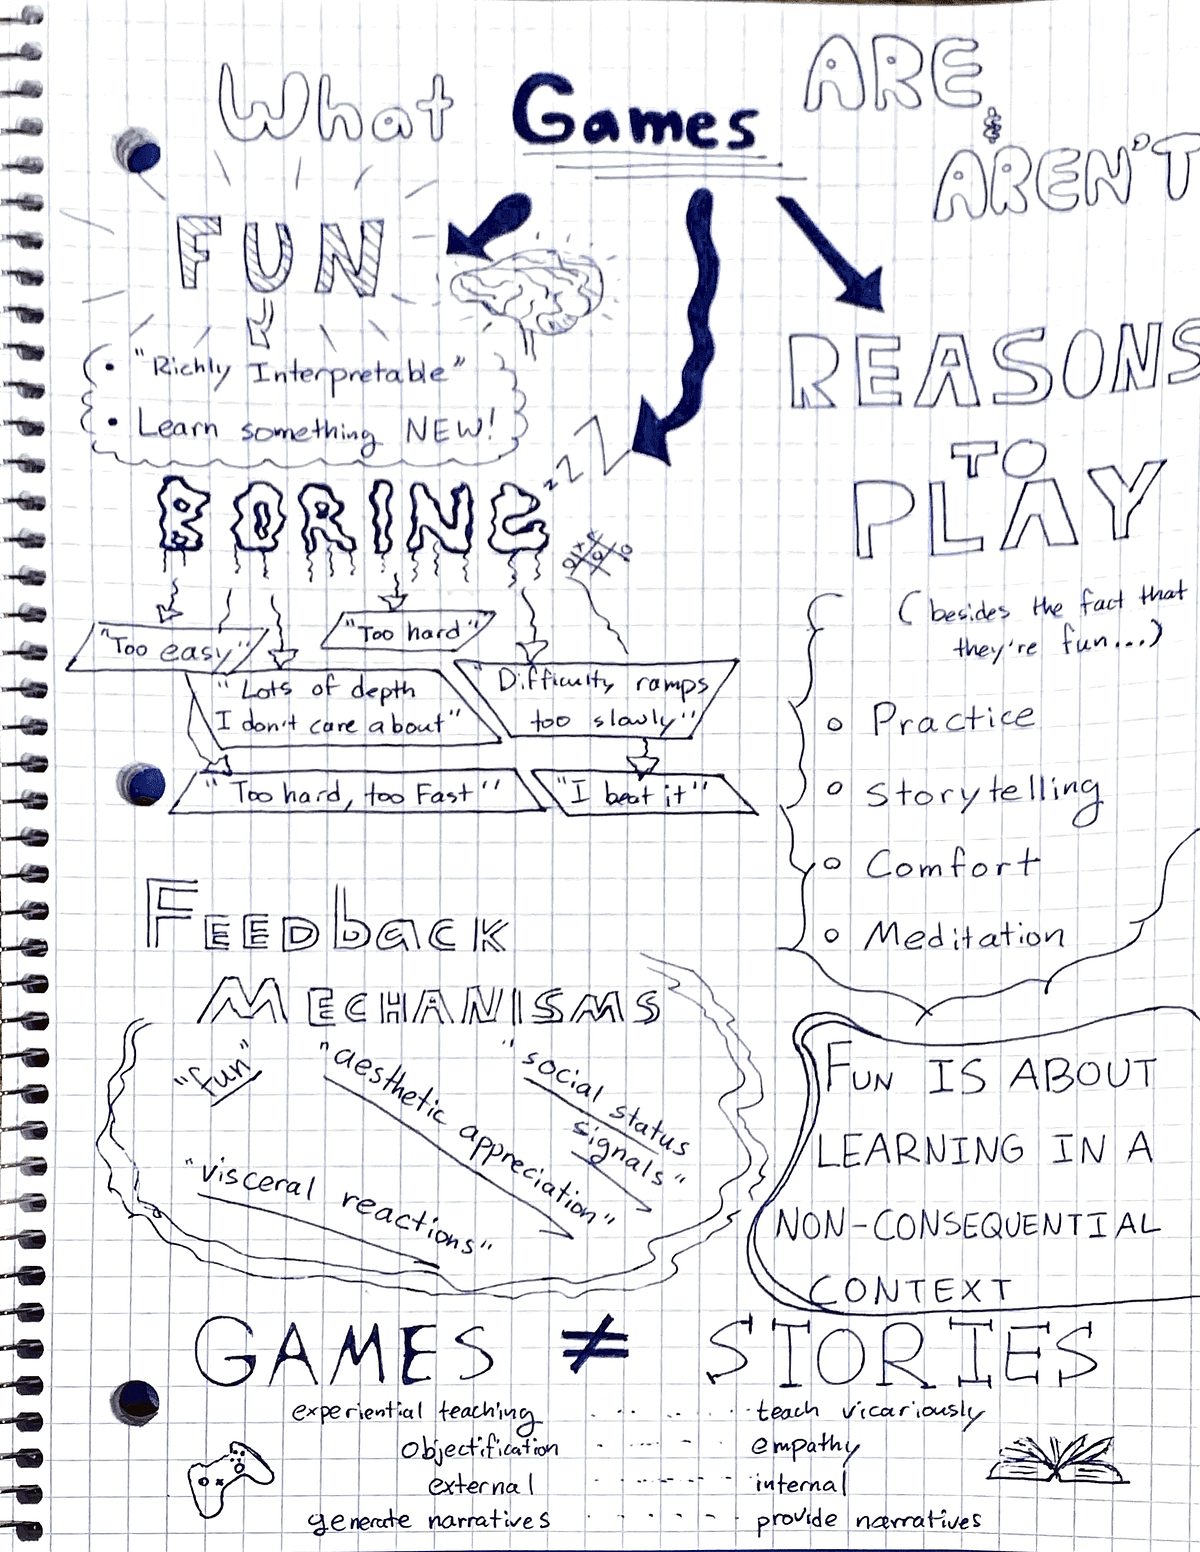 What Games ARE
&
AREN'T
FUN
• "Richly Interpretable"
• Learn something NEW!
zzZ
BORING
"Too easy"
"Too hard"
"Lots of depth
I don't care about"
"Difficulty ramps
too slowly"
"Too hard, too Fast"
"I beat it"
REASONS
TO
PLAY
(besides the fact that
they're fun...)
o Practice
o Storytelling
o Comfort
o Meditation
FEEDback
MECHANISMS
"fun"
"aesthetic appreciation"
"social status
signals"
"visceral reactions"
FUN IS ABOUT
LEARNING IN A
NON-CONSEQUENTIAL
CONTEXT
GAMES ≠ STORIES
experiential teaching ........ teach vicariously
objectification ........ empathy
external ........ internal
generate narratives ........ provide narratives